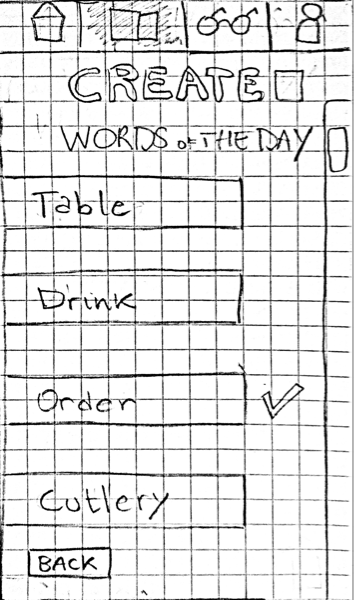 CREATE
WORDS OF THE DAY
Table
Drink
Order
Cutlery
BACK